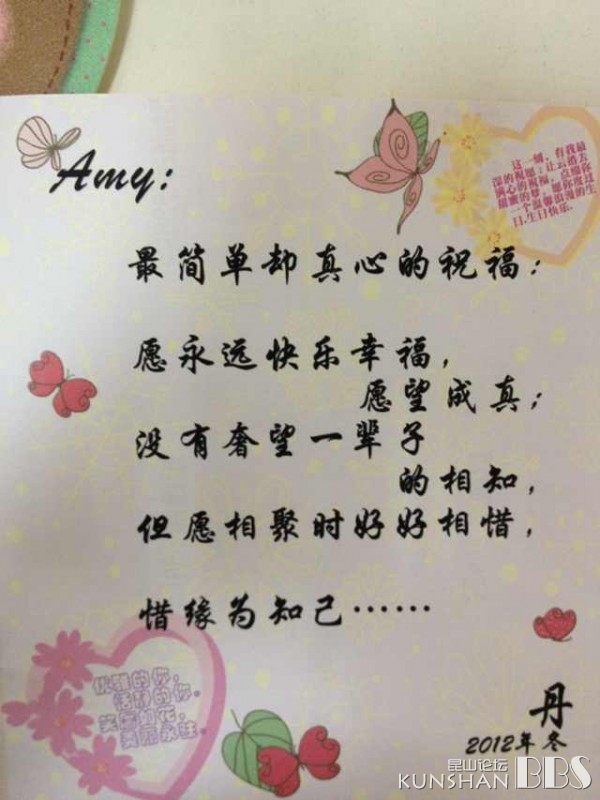 Amy:
这一刻，有我最
深的祝愿：让云捎去
满心的祝福，点缀你
甜蜜的梦，愿你度过
一个温馨浪漫的生
日.生日快乐.
最简单却真心的祝福：
愿永远快乐幸福，
愿望成真；
没有奢望一辈子
的相知，
但愿相聚时好好相惜，
惜缘为知己……
优雅的你，
恬静的你。
笑靥如花，
美丽永驻。
丹
2012年冬
昆山论坛
KUNSHAN BBS